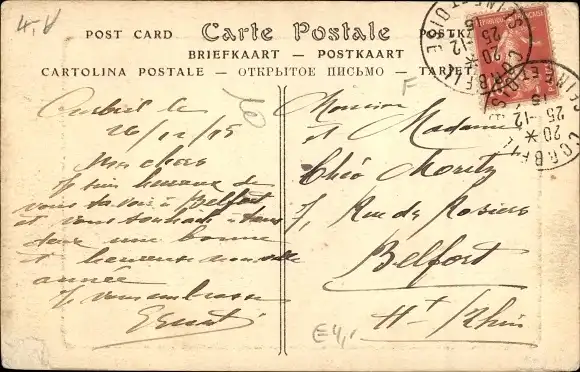 4,V
POST CARD Carte Postale POSTK
BRIEFKAART — POSTKAART
CARTOLINA POSTALE — ОТКРЫТОЕ ПИСЬМО — TARJET
CORBEIL
SEINE ET OISE
20 *
25-12
15
CORBEIL
SEINE ET OISE
20 *
25-12
15
F
10
Corbeil le
26/12/15
Mes chers
Je suis heureux de
vous savoir à Belfort
et vous souhaite à tous
deux une bonne
et heureuse nouvelle
année
Je vous embrasse
Ernest
Monsieur
et Madame
Théo Moritz
7, Rue des Rosiers
Belfort
Ht Rhin
E4,-